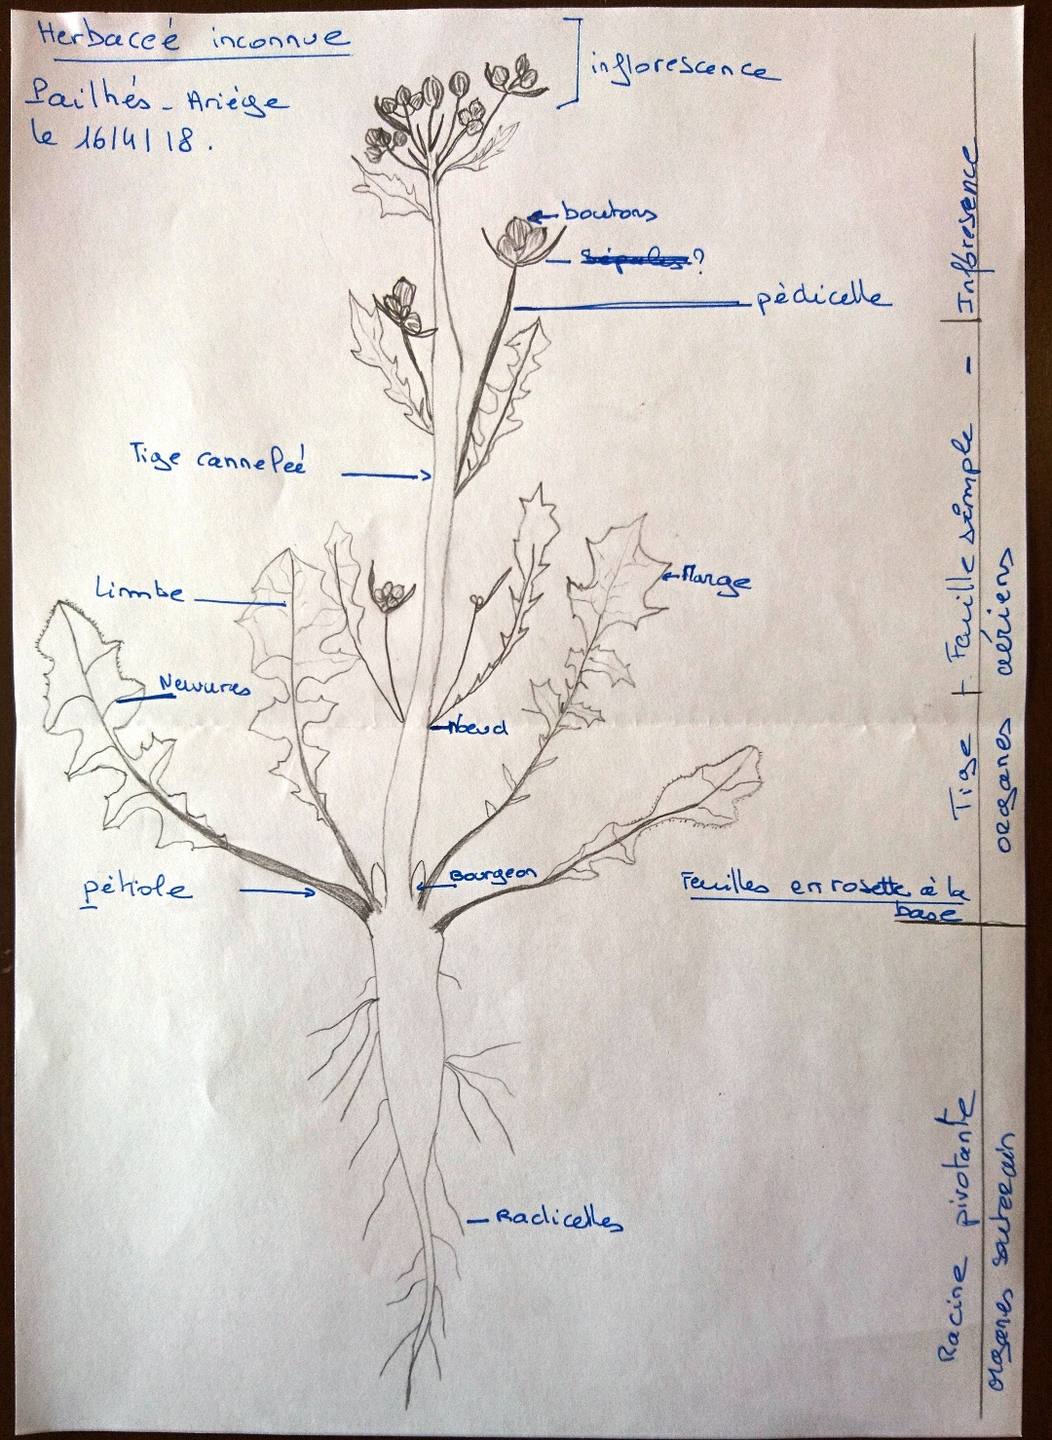 Herbaceé inconnue
Pailhés - Ariége
le 16/4/18.
inflorescence
boutons
Sépales?
pèdicelle
Tige canneleé
Limbe
Marge
Nervures
Nœud
pétiole
Bourgeon
Feuilles en rosette à la
base
Radicelles
Tige + Feuille simple - Inflorescence
organes aériens
Racine pivotante
organes souterrain